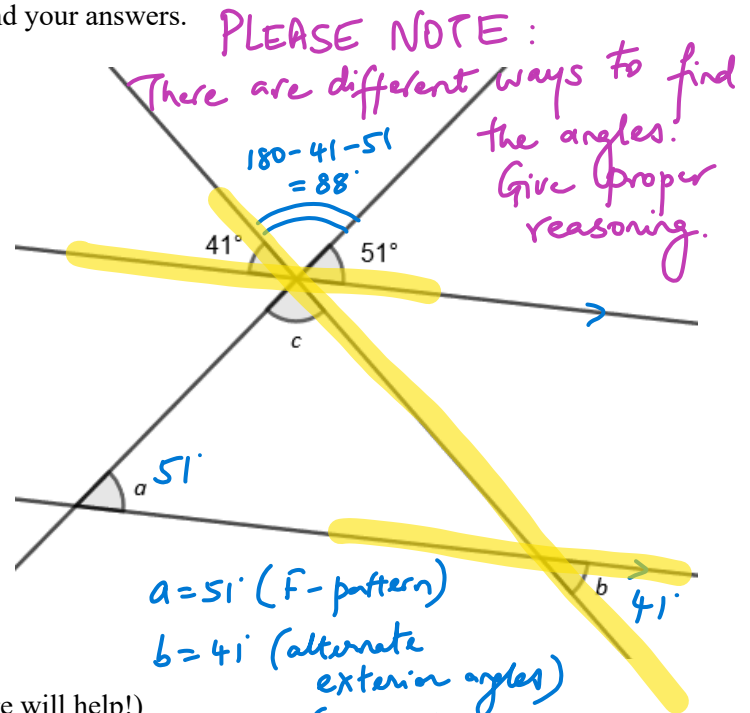 nd your answers.
PLEASE NOTE :
There are different ways to find
the angles.
Give proper
reasoning.
180-41-51
= 88°
41°
51°
c
a 51°
b 41°
a = 51° (F-pattern)
b = 41° (alternate
exterior angles)
e will help!)